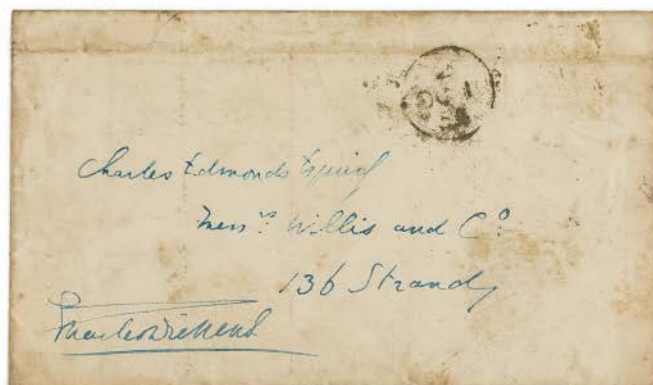 Charles Edmonds Esquire
Mess.rs Willis and Co.
136 Strand,
Charles Dickens